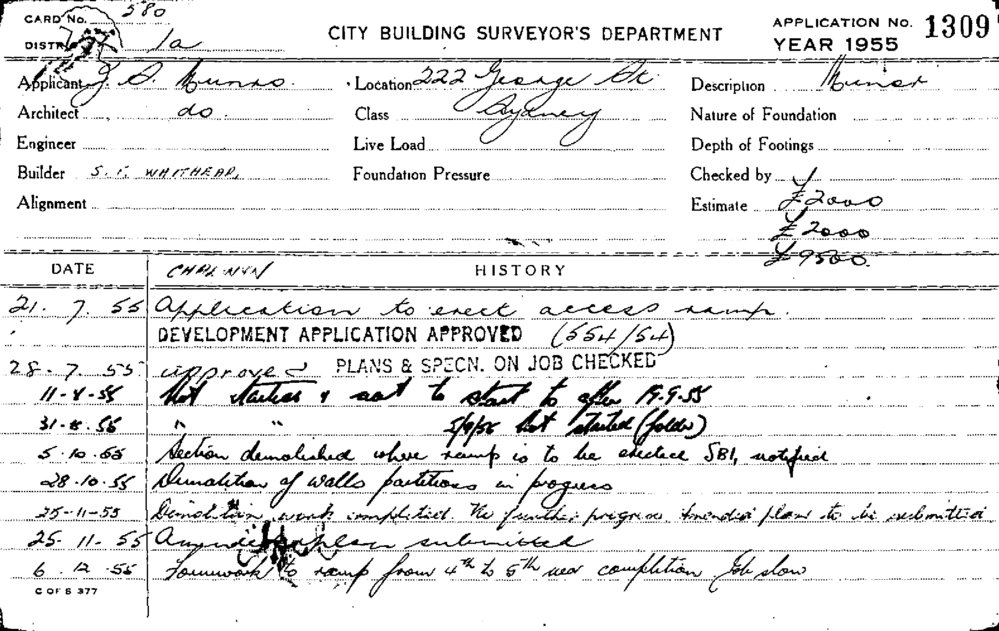 CARD No. 580
CITY BUILDING SURVEYOR'S DEPARTMENT
APPLICATION No. 1309
YEAR 1955
DISTR 1a
Applicant J. S. Munro. Location 222 George St. Description Minor
Architect do. Class Sydney Nature of Foundation
Engineer Live Load Depth of Footings
Builder S. F. WHITHEAR, Foundation Pressure Checked by
Alignment Estimate £2000
£2000
£9500.
DATE CHAPMAN HISTORY
21. 7. 55 Application to erect access ramp.
DEVELOPMENT APPLICATION APPROVED (554/54)
28. 7. 55 approved PLANS & SPECN. ON JOB CHECKED
11-8-55 Not started & not to start to after 19.9.55
31-8.55 " " Not started (folder)
5.10.55 Section demolished where ramp is to be erected SBI, notified
28.10.55 Demolition of walls partitions in progress
25-11-55 Demolition work completed. No further progress. Amended plan to be submitted
25. 11. 55 Amended plan submitted
6. 12. 55 Formwork to ramp from 4th to 5th near completion Job slow
C OF S 377